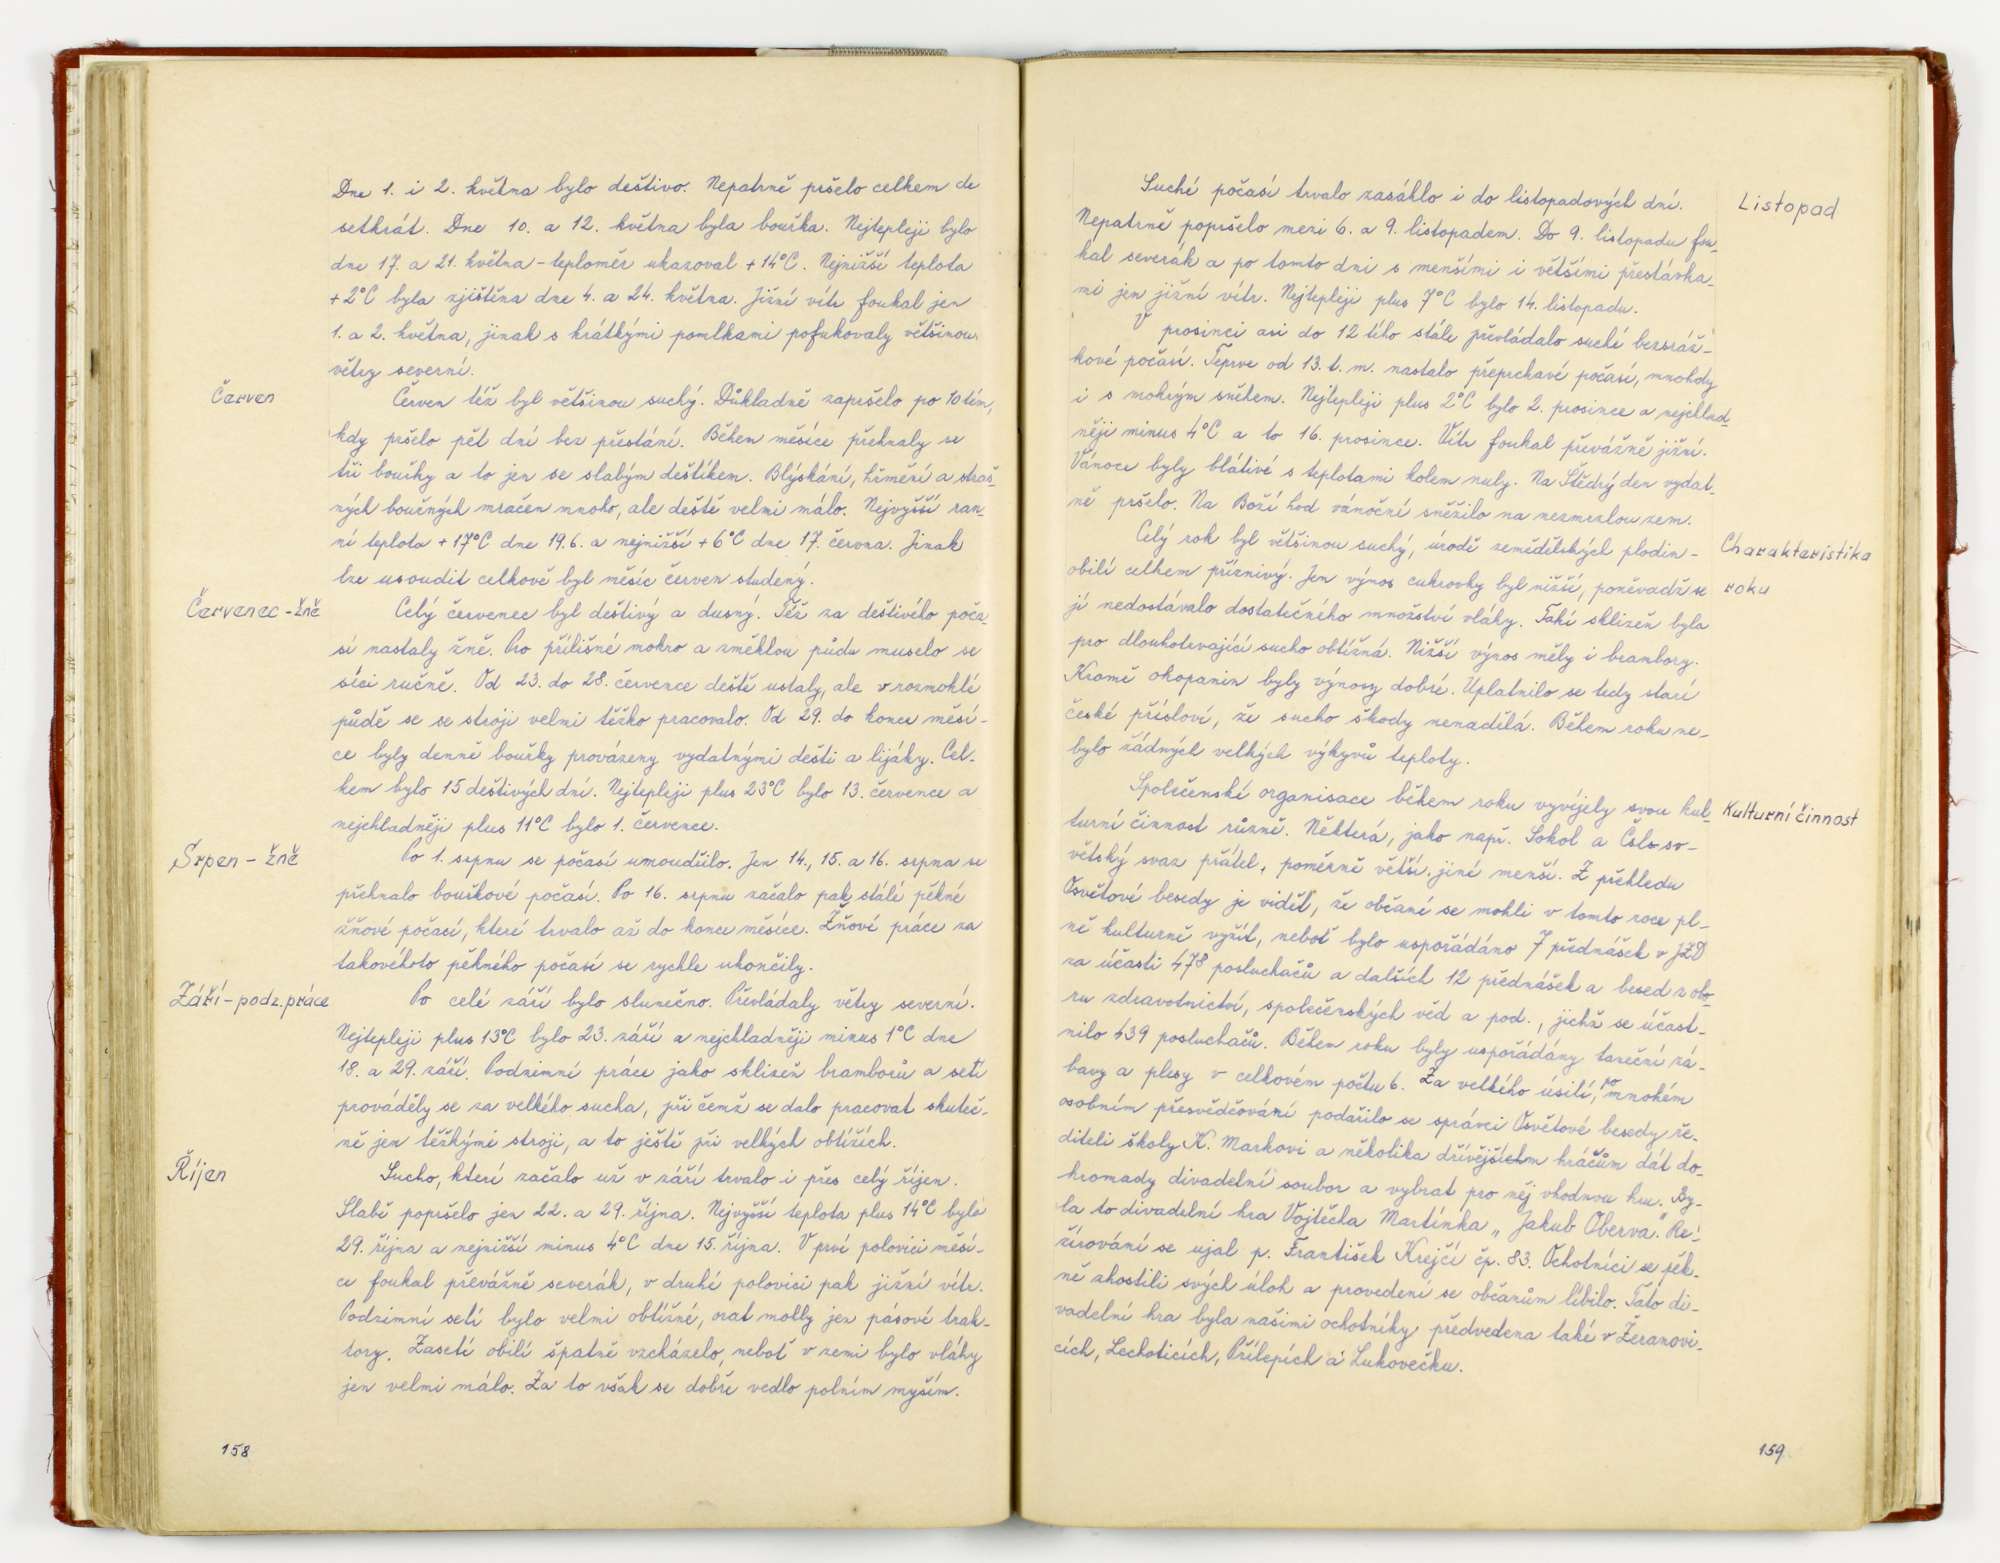 Dne 1. i 2. května bylo deštivo. Nepatrně pršelo celkem de
setkrát. Dne 10. a 12. května byla bouřka. Nejtepleji bylo
dne 17. a 21. května - teploměr ukazoval + 14°C. Nejnižší teplota
+ 2°C byla zjištěna dne 4. a 24. května. Jižní vítr foukal jen
1. a 2. května, jinak s krátkými pomlkami pofukovaly většinou
větry severní.
Červen
Červen též byl většinou suchý. Důkladně zapršelo po 10tém,
kdy pršelo pět dní bez přestání. Během měsíce přehnaly se
tři bouřky a to jen se slabým deštíkem. Blýskání, hřmění a straš-
ných bouřných mračen mnoho, ale deště velmi málo. Nejvyšší ran-
ní teplota + 17°C dne 19.6. a nejnižší + 6°C dne 17. června. Jinak
lze usoudit celkově byl měsíc červen studený.
Červenec - žně
Celý červenec byl deštivý a dusný. Též za deštivého poča-
sí nastaly žně. Pro přílišné mokro a změklou půdu muselo se
séci ručně. Od 23. do 28. července deště ustaly, ale v rozmoklé
půdě se se stroji velmi těžko pracovalo. Od 29. do konce měsí-
ce byly denně bouřky provázeny vydatnými dešti a lijáky. Cel-
kem bylo 15 deštivých dní. Nejtepleji plus 23°C bylo 13. července a
nejchladněji plus 11°C bylo 1. července.
Srpen - žně
Po 1. srpnu se počasí umoudřilo. Jen 14., 15. a 16. srpna se
přehnalo bouřkové počasí. Po 16. srpnu začalo pak stálé pěkné
žňové počasí, které trvalo až do konce měsíce. Žňové práce za
takovéhoto pěkného počasí se rychle ukončily.
Září - podz. práce
Po celé září bylo slunečno. Převládaly větry severní.
Nejtepleji plus 13°C bylo 23. září a nejchladněji minus 1°C dne
18. a 29. září. Podzimní práce jako sklizeň bramborů a setí
prováděly se za velkého sucha, při čemž se dalo pracovat skuteč-
ně jen těžkými stroji, a to ještě při velkých obtížích.
Říjen
Sucho, které začalo už v září trvalo i přes celý říjen.
Slabě popršelo jen 22. a 29. října. Nejvyšší teplota plus 14°C byla
29. října a nejnižší minus 4°C dne 15. října. V prvé polovici měsí-
ce foukal převážně severák, v druhé polovici pak jižní vítr.
Podzimní setí bylo velmi obtížné, orat mohly jen pásové trak-
tory. Zaseté obilí špatně vzcházelo, neboť v zemi bylo vláhy
jen velmi málo. Za to však se dobře vedlo polním myším.
158
Suché počasí trvalo zasáhlo i do listopadových dní.
Listopad
Nepatrně popršelo mezi 6. a 9. listopadem. Do 9. listopadu fou-
kal severák a po tomto dni s menšími i většími přestávka-
mi jen jižní vítr. Nejtepleji plus 7°C bylo 14. listopadu.
V prosinci asi do 12tého stále převládalo suché bezsráž-
kové počasí. Teprve od 13. t. m. nastalo přeprchavé počasí, mnohdy
i s mokrým sněhem. Nejtepleji plus 2°C bylo 2. prosince a nejchlad-
něji minus 4°C a to 16. prosince. Vítr foukal převážně jižní.
Vánoce byly blátivé s teplotami kolem nuly. Na Štědrý den vydat-
ně pršelo. Na Boží hod vánoční sněžilo na nezmrzlou zem.
Celý rok byl většinou suchý, úrodě zemědělských plodin -
Charakteristika
obilí celkem příznivý. Jen výnos cukrovky byl nižší, poněvadž se
roku
jí nedostávalo dostatečného množství vláhy. Také sklizeň byla
pro dlouhotrvající sucho obtížná. Nižší výnos měly i brambory.
Kromě okopanin byly výnosy dobré. Uplatnilo se tedy staré
české přísloví, že sucho škody nenadělá. Během roku ne-
bylo žádných velkých výkyvů teploty.
Společenské organisace během roku vyvíjely svou kul-
Kulturní činnost
turní činnost různě. Některá, jako např. Sokol a Čsl. so-
větský svaz přátel, poměrně větší, jiné menší. Z přehledu
Osvětové besedy je vidět, že občané se mohli v tomto roce pl-
ně kulturně vyžít, neboť bylo uspořádáno 7 přednášek v JZD
za účasti 478 posluchačů a dalších 12 přednášek a besed z obo-
ru zdravotnictví, společenských věd a pod., jichž se účast-
nilo 439 posluchačů. Během roku byly uspořádány taneční zá-
bavy a plesy v celkovém počtu 6. Za velkého úsilí, po mnohém
osobním přesvědčování podařilo se správci Osvětové besedy ře-
diteli školy K. Markovi a několika dřívějším hráčům dát do-
hromady divadelní soubor a vybrat pro něj vhodnou hru. By-
la to divadelní hra Vojtěcha Martínka „Jakub Oberva." Re-
žírování se ujal p. František Krejčí čp. 83. Ochotníci se pěk-
ně zhostili svých úloh a provedení se občanům líbilo. Tato di-
vadelní hra byla našimi ochotníky předvedena také v Žeranovi-
cích, Lechoticích, Přílepích a Lukovečku.
159